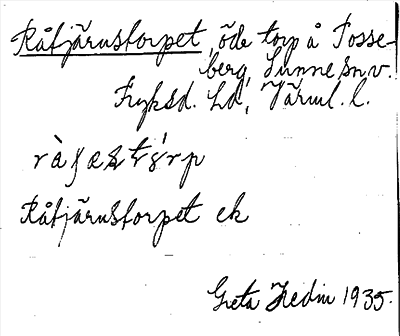 Råtjärnstorpet, öde torp å Tosse-
berg, Sunne sn. v.
Fryksd. hd, Värml. l.
Råtjärnstorpet ek
Greta Hedin 1935.